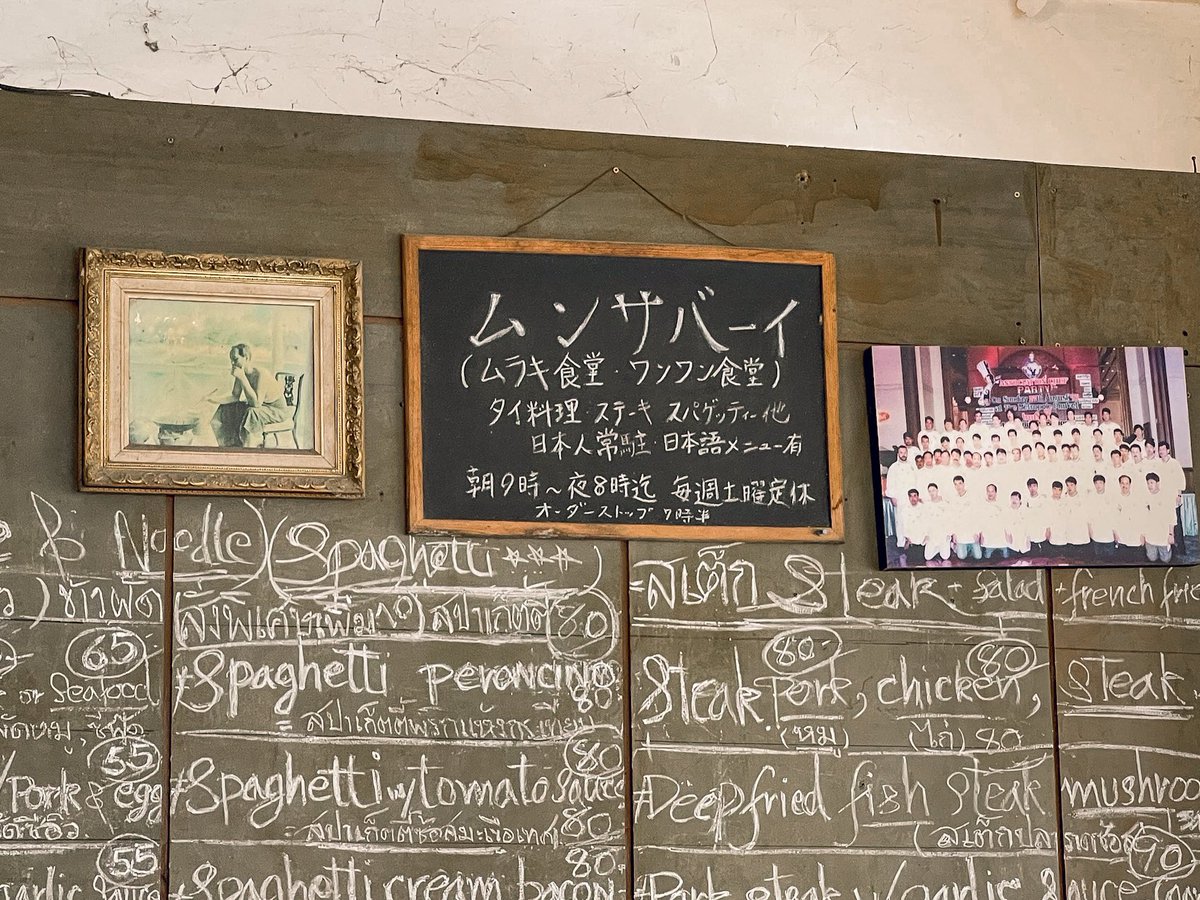 ムンサバーイ
(ムラキ食堂・ワンワン食堂)
タイ料理・ステーキ スパゲッティー他
日本人常駐・日本語メニュー有
朝9時〜夜8時迄 毎週土曜定休
オーダーストップ 7時半
PARTY
Noodle) (Spaghetti ☆☆☆☆)
ข้าวผัด
สปาเก็ตตี้ 80
65
Spaghetti peroncino 80
or Seafood
สปาเก็ตตี้พริกแห้งกระเทียม
55
Pork & egg
Spaghetti w/ tomato sauce 80
สปาเก็ตตี้ซอสมะเขือเทศ 80
55
Garlic Sauce
Spaghetti cream bacon 80
สเต็ก Steak + salad + french fries
80 80
Steak pork, chicken, steak
(หมู) (ไก่) 80
Deep fried fish steak
mushroo
(สเต็กปลา
90
Pork steak w/ garlic Sauce